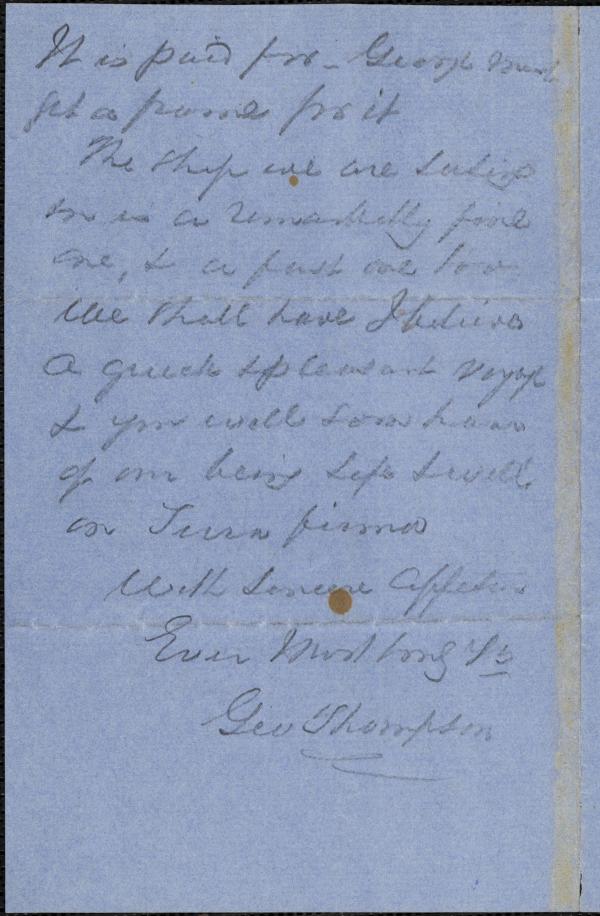 It is paid for - George must
get a frame for it
The ship we are sailing
in is a remarkably fine
one, & a fast one too
We shall have I believe
a quick & pleasant voyage
& you will soon hear
of our being safe & well
on Terra firma
With sincere affection
Ever Most truly Yrs
Geo Thompson